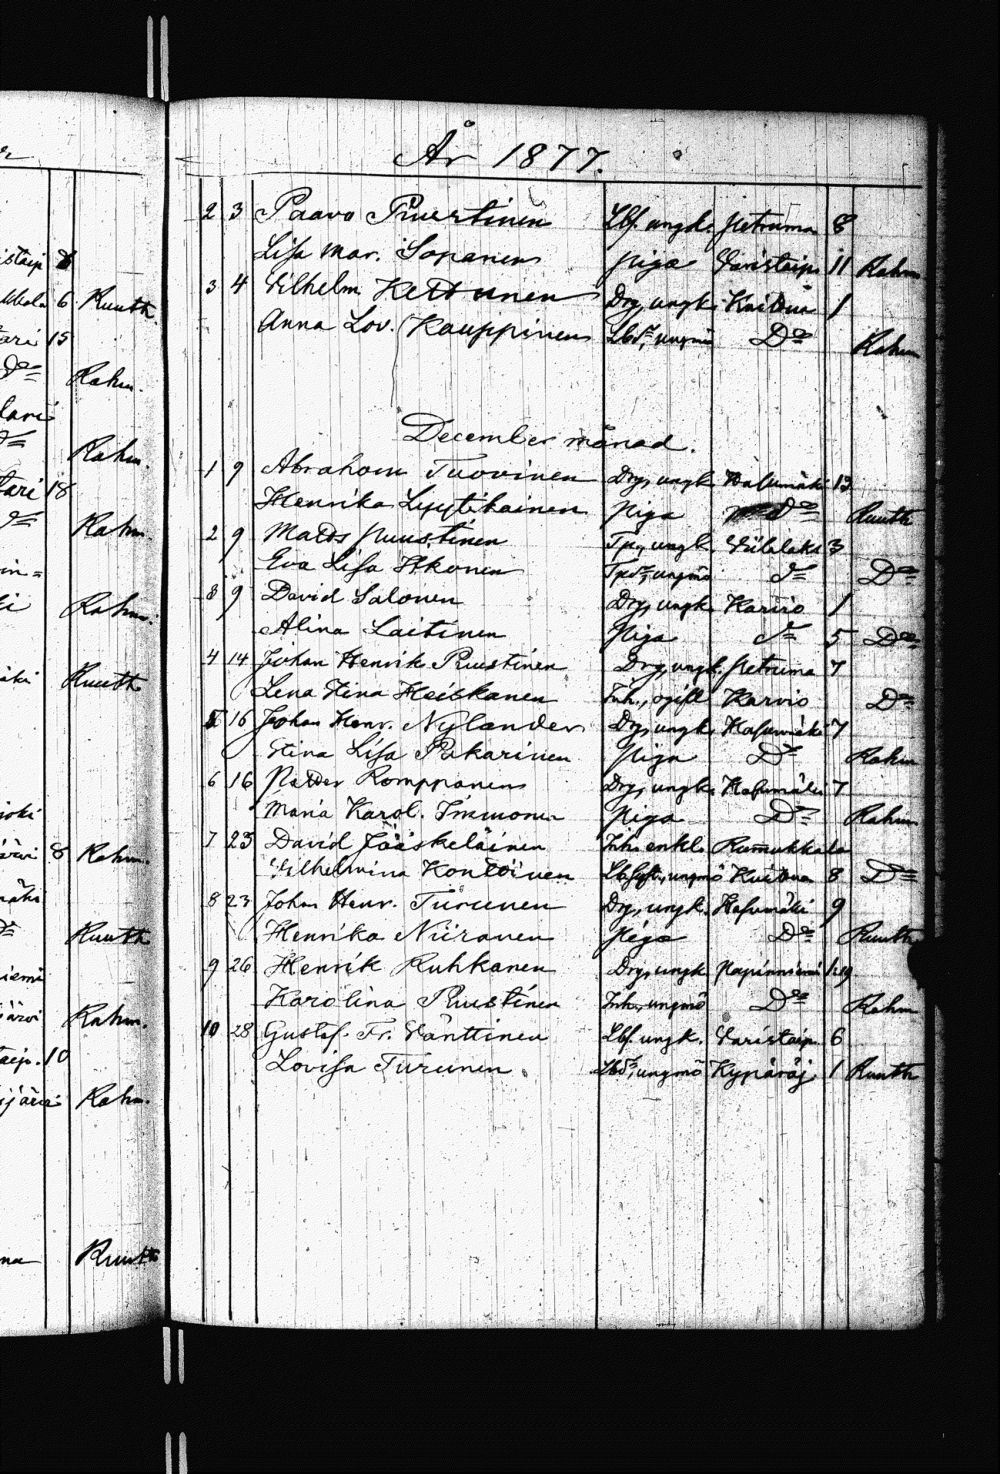 År 1877.
2 3 Paavo Puustinen Lbf. ungk. Petruma 8
Lisa Mar. Sopanen Piga Varistaip. 11 Rahm
3 4 Vilhelm Kettunen Drg, ungk. Kuittua 1
Anna Lov. Kauppinen Lbdr, ungmö Do Rahm
December månad.
1 9 Abraham Tuovinen Drg, ungk Hasumäki 13
Henrika Lyytikainen Piga Do Ruuth
2 9 Matts Puustinen Tp., ungk.  3
Eva Lisa Ikonen Tpdr, ungmö Do Do
3 9 David Salonen Drg, ungk. Karvio 1
Alina Laitinen Piga Do 5 Do
4 14 Johan Henrik Puustinen Drg, ungk. Petruma 7
Lena Stina Heiskanen Inh., ogift Karvio Do
5 16 Johan Henr. Nylander Drg, ungk. Hasumäki 7
Stina Lisa Pakarinen Piga Do Rahm
6 16 Petter Romppanen Drg, ungk. Hasumäki 7
Maria Karol. Immonen Piga Do Rahm
7 23 David Jääskeläinen Inh. enkl. Rummukkala
Vilhelmina Kontoinen ungmö Kuittua 8 Do
8 23 Johan Henr. Turunen Drg, ungk. Hasumäki 9
Henrika Niiranen Piga Do Ruuth
9 26 Henrik Ruhkanen Drg, ungk Papinniemi 1.19
Karolina Puustinen Inh., ungmö Do Rahm
10 28 Gustaf. Fr. Vänttinen Lbf. ungk. Varistaip. 6
Lovisa Turunen Lbdr, ungmö Kypäräj 1 Ruuth
8
6 Ruuth.
15
Do Rahm.
Do Rahm.
18
Do Rahm.
Rahm.
Ruuth
8 Rahm.
Do Ruuth
Rahm.
10
Rahm.
Ruuth